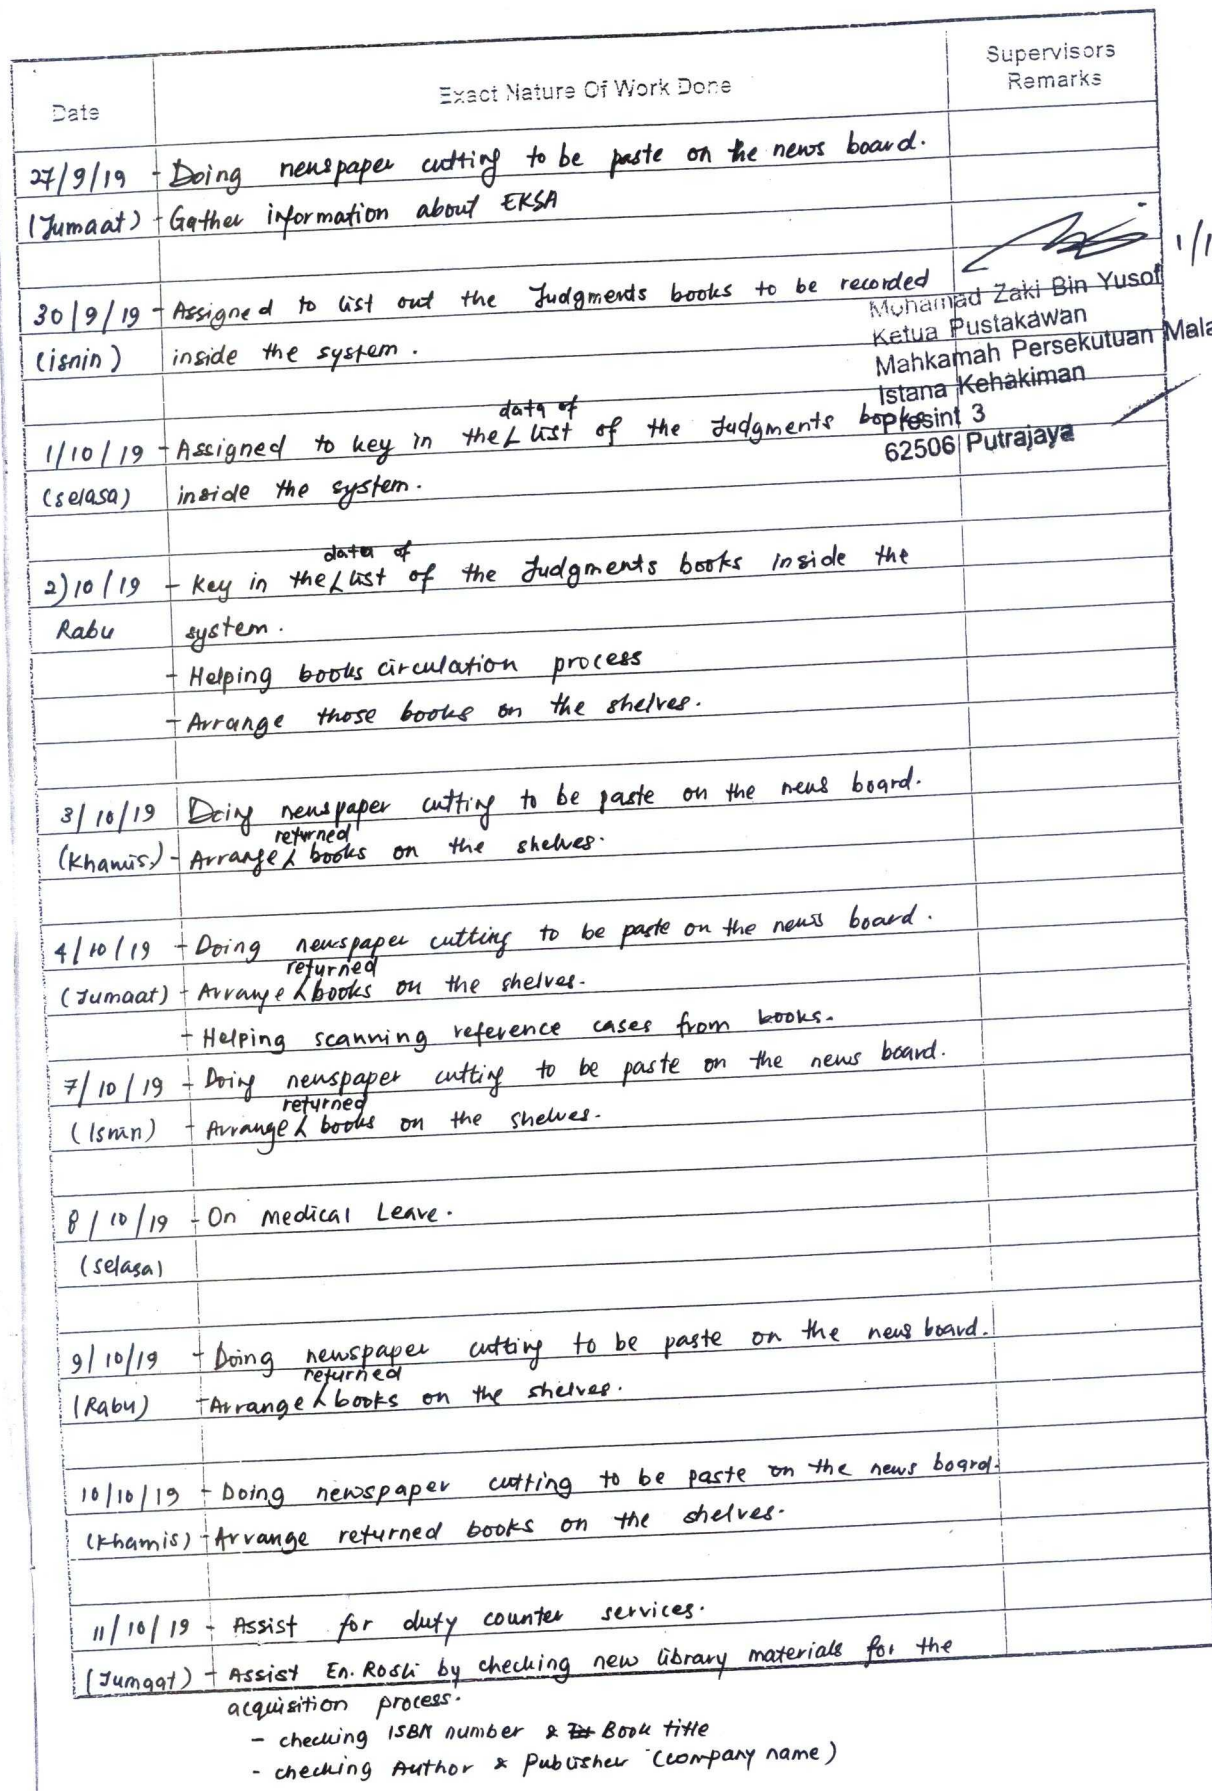 Date Exact Nature Of Work Done Supervisors Remarks
27/9/19 - Doing newspaper cutting to be paste on the news board.
(Jumaat) - Gather information about EKSA
1/1
30/9/19 - Assigned to list out the Judgments books to be recorded
(isnin) inside the system.
Muhamad Zaki Bin Yusof
Ketua Pustakawan
Mahkamah Persekutuan Mala
Istana Kehakiman
Presint 3
62506 Putrajaya
data of
1/10/19 - Assigned to key in the list of the Judgments books
(selasa) inside the system.
data of
2)10/19 - Key in the list of the Judgments books inside the
Rabu system.
- Helping books circulation process
- Arrange those books on the shelves.
3/10/19 Doing newspaper cutting to be paste on the news board.
returned
(Khamis) - Arrange books on the shelves.
4/10/19 - Doing newspaper cutting to be paste on the news board.
returned
(Jumaat) - Arrange books on the shelves.
- Helping scanning reference cases from books.
7/10/19 - Doing newspaper cutting to be paste on the news board.
returned
(Isnin) - Arrange books on the shelves.
8/10/19 - On Medical Leave.
(selasa)
9/10/19 - Doing newspaper cutting to be paste on the news board.
returned
(Rabu) - Arrange books on the shelves.
10/10/19 - Doing newspaper cutting to be paste on the news board.
(Khamis) - Arrange returned books on the shelves.
11/10/19 - Assist for duty counter services.
(Jumaat) - Assist En. Rosli by checking new library materials for the
acquisition process.
- checking ISBN number & Book title
- checking Author & Publisher (company name)